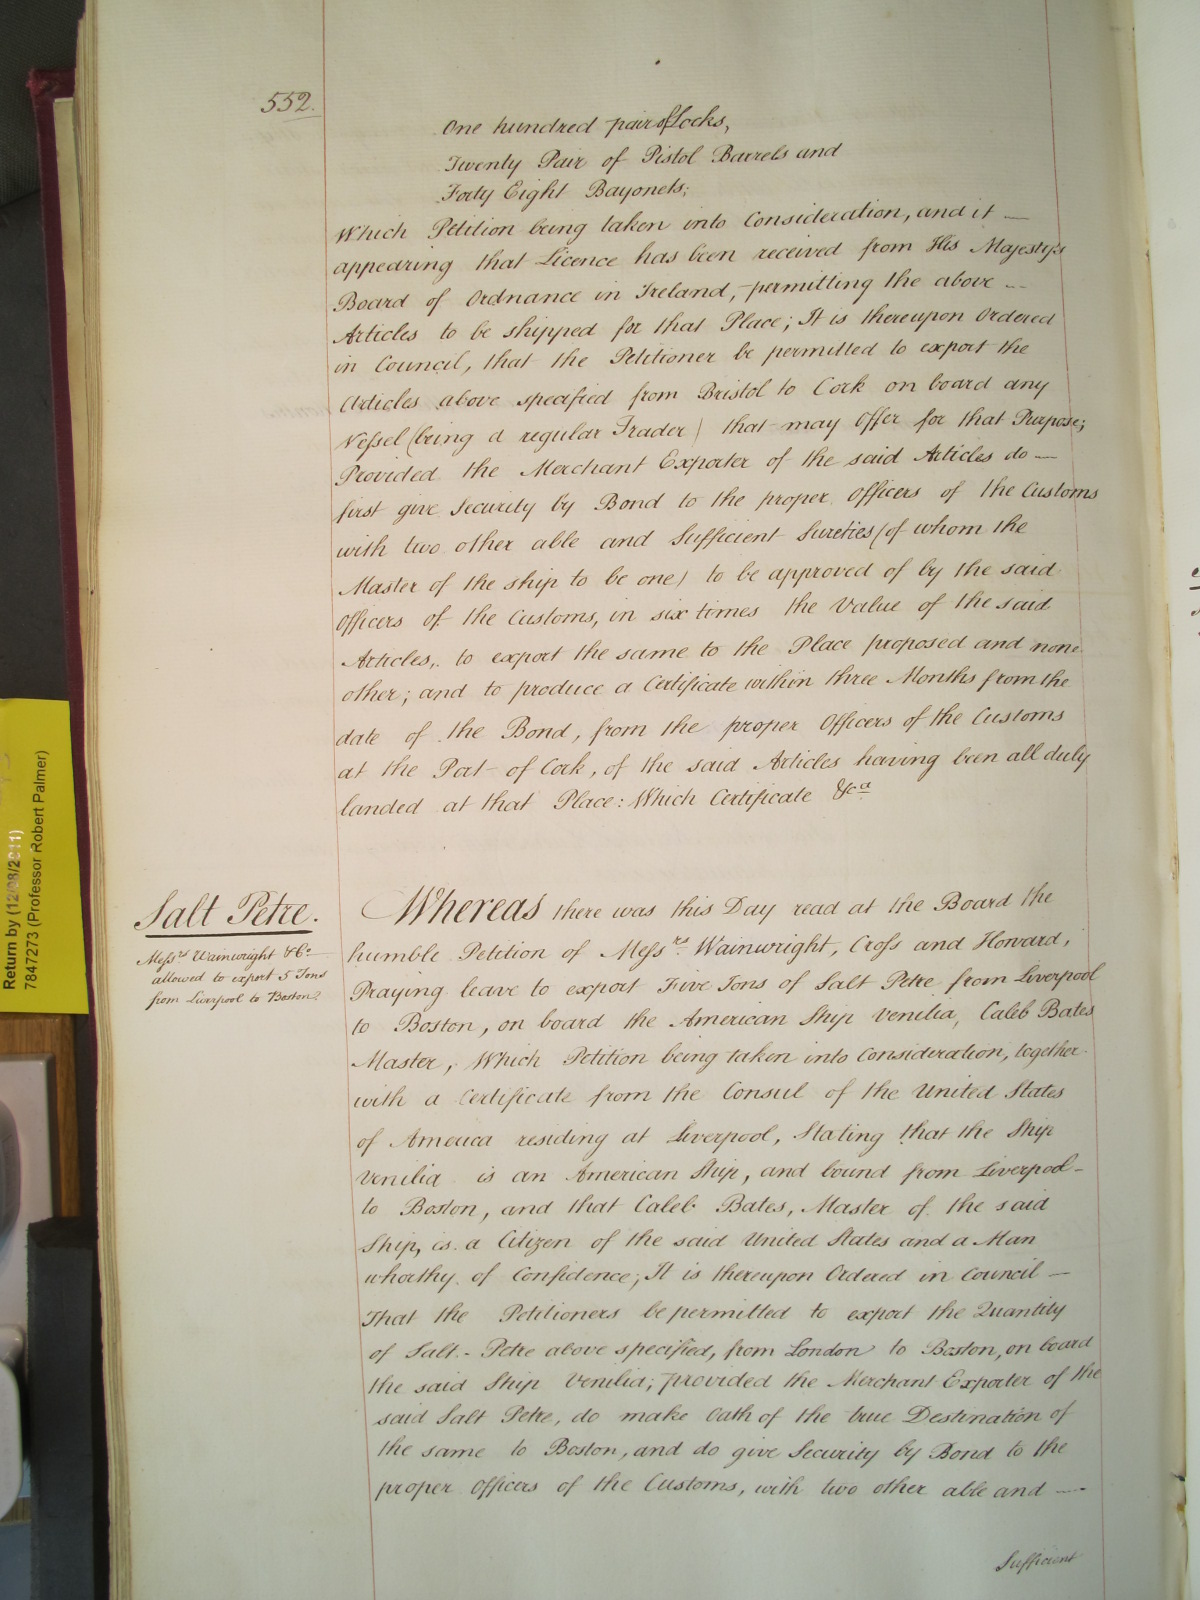 552.
One hundred pair of Locks,
Twenty Pair of Pistol Barrels and
Forty Eight Bayonets;
Which Petition being taken into Consideration, and it —
appearing that Licence has been received from His Majesty's
Board of Ordnance in Ireland, permitting the above --
Articles to be shipped for that Place; It is thereupon Ordered
in Council, that the Petitioner be permitted to export the
Articles above specified from Bristol to Cork on board any
Vessel (being a regular Trader) that may Offer for that Purpose;
Provided the Merchant Exporter of the said Articles do —
first give Security by Bond to the proper Officers of the Customs
with two other able and Sufficient Sureties (of whom the
Master of the ship to be one) to be approved of by the said
Officers of the Customs, in six times the Value of the said
Articles, to export the same to the Place proposed and none
other; and to produce a Certificate within three Months from the
date of the Bond, from the proper Officers of the Customs
at the Port of Cork, of the said Articles having been all duly
landed at that Place: Which Certificate &ca
Salt Petre.
Messrs Wainwright & Co
allowed to export 5 Tons
from Liverpool to Boston.
Whereas there was this Day read at the Board the
humble Petition of Messrs. Wainwright, Cross and Howard,
Praying leave to export Five Tons of Salt Petre from Liverpool
to Boston, on board the American Ship Venilia, Caleb Bates
Master, Which Petition being taken into Consideration, together
with a Certificate from the Consul of the United States
of America residing at Liverpool, Stating that the Ship
Venilia is an American Ship, and bound from Liverpool -
to Boston, and that Caleb Bates, Master of the said
Ship, is a Citizen of the said United States and a Man
whorthy of Confidence; It is thereupon Ordered in Council —
That the Petitioners be permitted to export the Quantity
of Salt - Petre above specified, from London to Boston, on board
the said Ship Venilia; provided the Merchant Exporter of the
said Salt Petre, do make Oath of the true Destination of
the same to Boston, and do give Security by Bond to the
proper Officers of the Customs, with two other able and —
Sufficient
Return by (12/08/2011)
7847273 (Professor Robert Palmer)